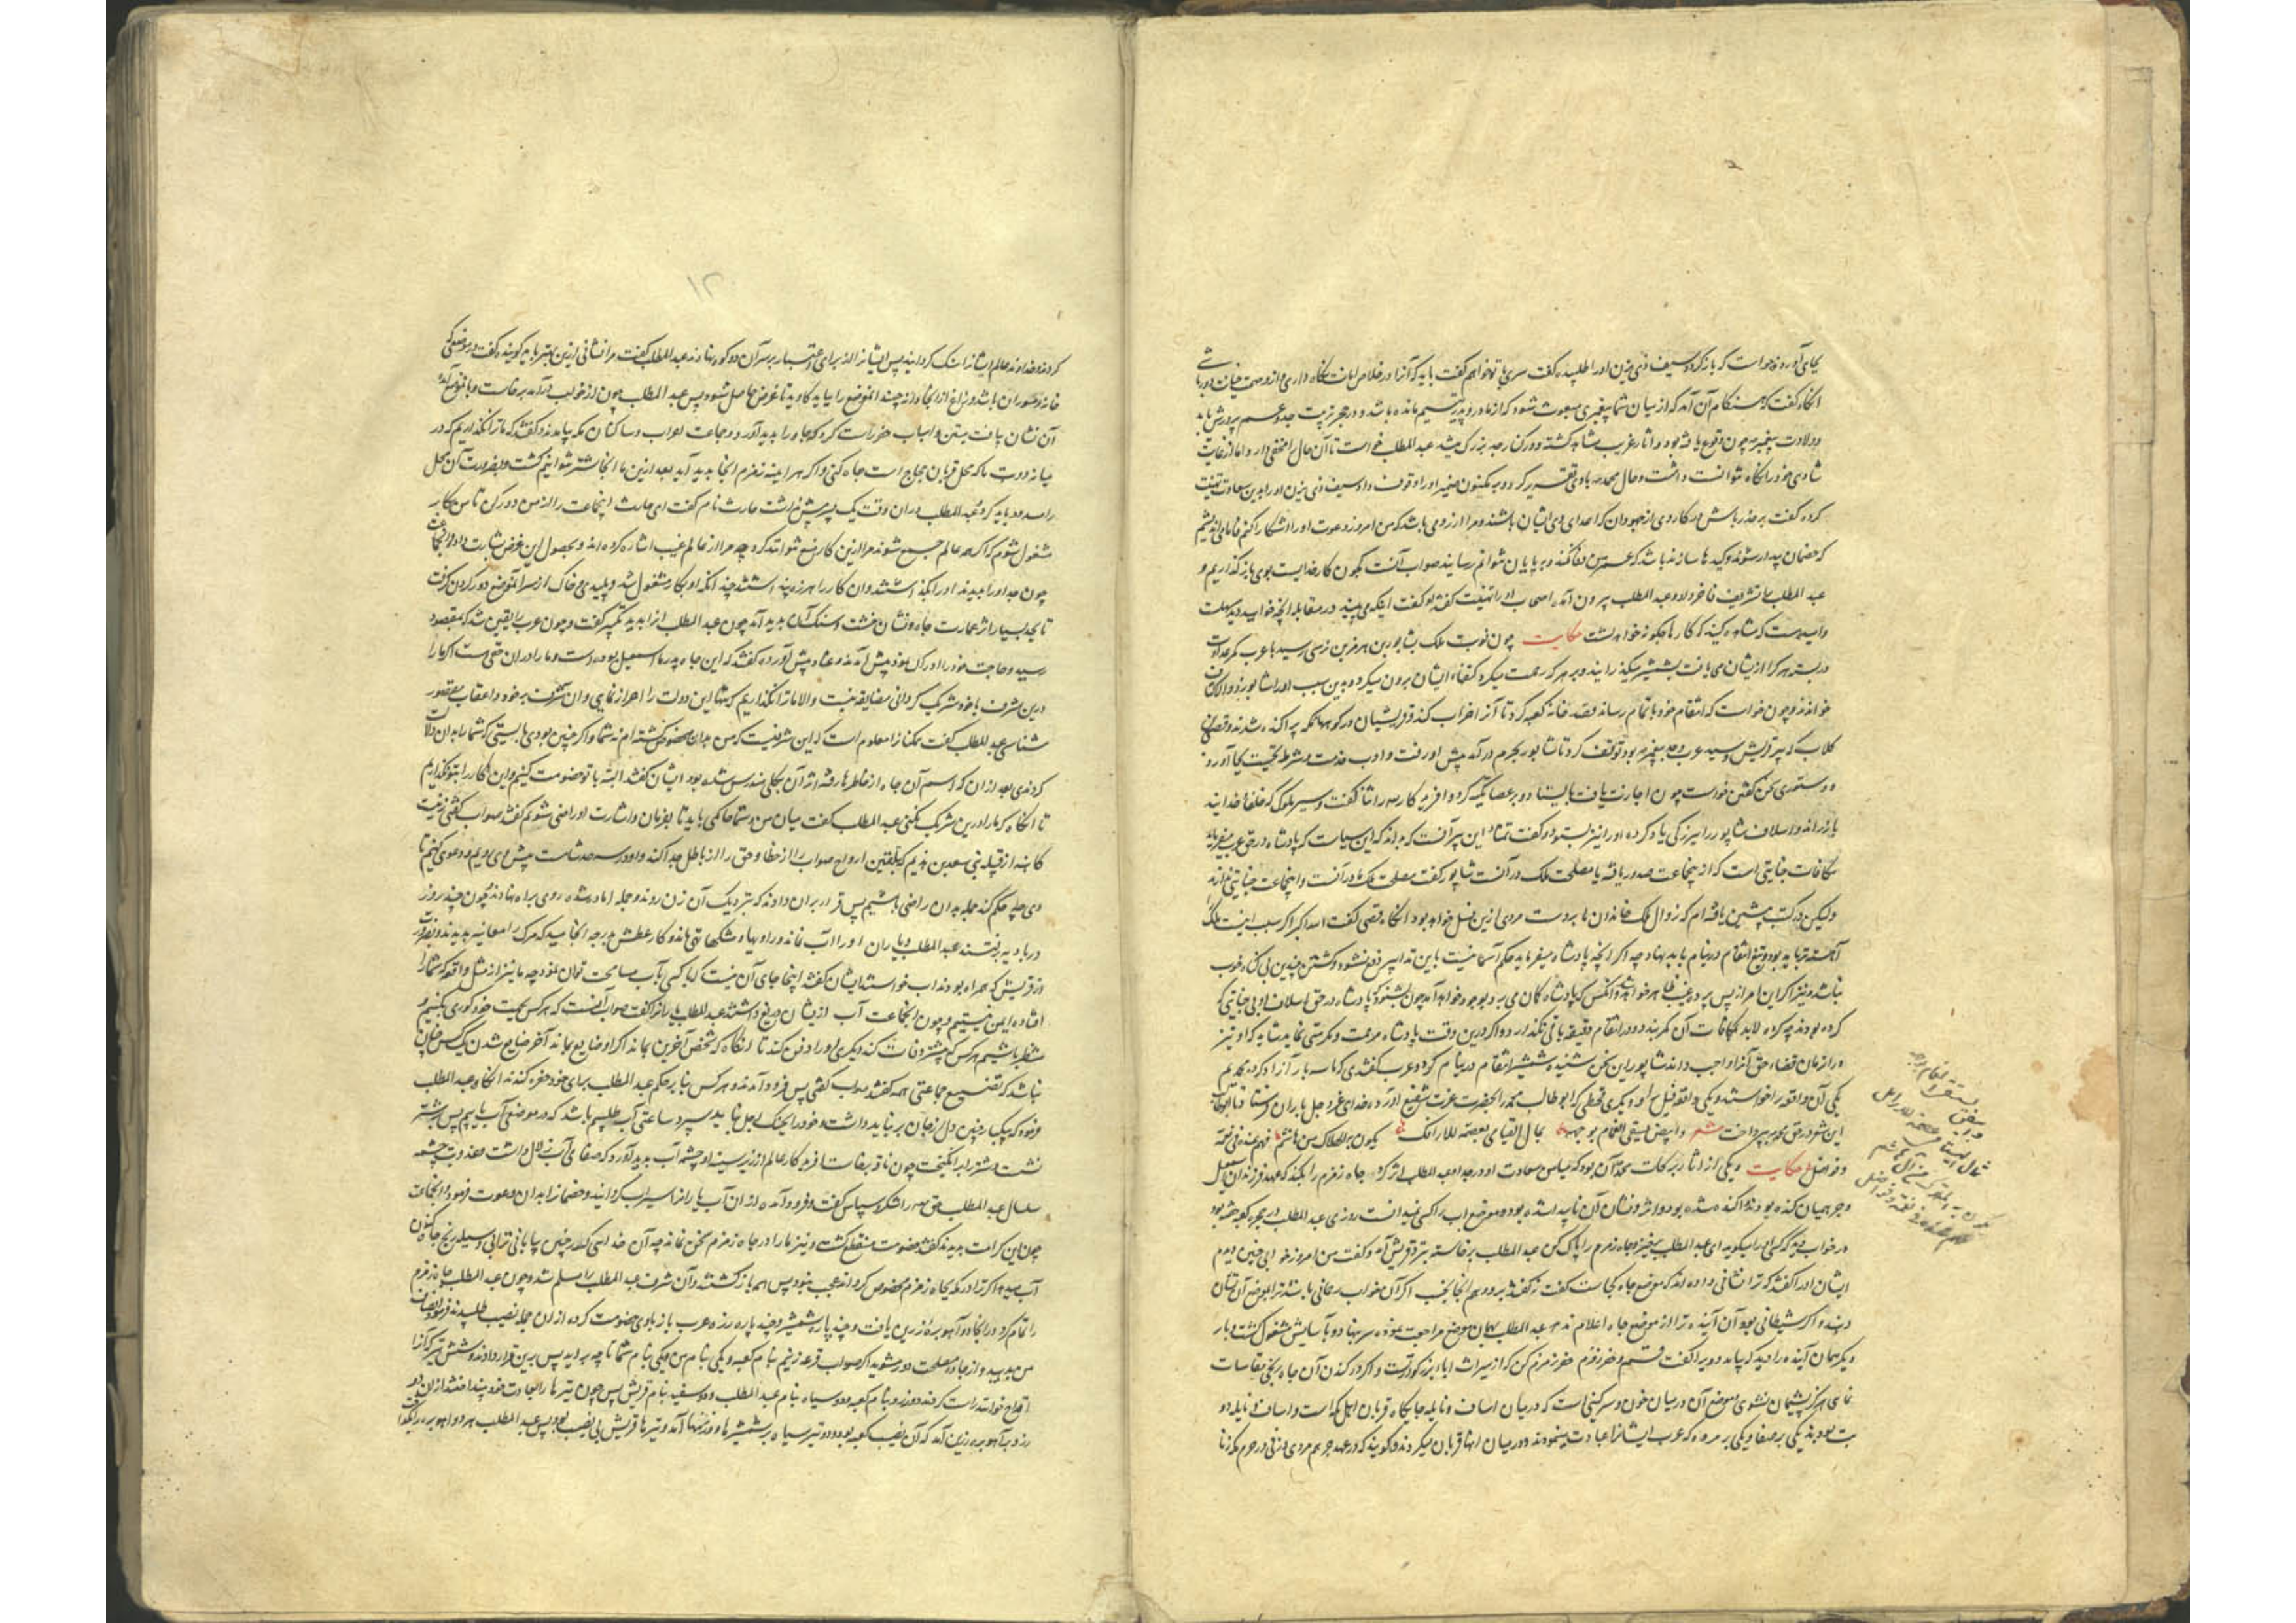 بجای آورد و خواست که باز گردد سیف ذی یزن او را طلبید و گفت سری با تو خواهم گفت باید که آنرا در
انکاه گفت که هنگام آن آمد که از میان شما پیغمبری مبعوث شود که از مادر و پدر یتیم مانده باشد و در حجر تربیت جد و عم پرورش یابد
و ولادت پیغمبر چون وقوع یافته بود و آثار غریب مشاهده گشته و در کنار جد بزرک میشد عبد المطلب خواست تا آن حال مخفی دارد اما از غایت
شادی خود را نگاه نتوانست داشت و حال محمد با وی تقریر کرد
کرده گفت بر حذر باش در کار وی از جهودان که اعدای وی ایشان باشند و مرا آرزو می باشد که من امروز دعوت او را آشکارا کنم فاما می اندیشم
که خصمان بیدار شوند و کیدها سازند باشد که عمر من وفا نکند و بپایان نتوانم رسانید صواب آنست که چون کار خدایست بوی باز گذاریم و
عبد المطلب را تشریف فاخر داد و عبد المطلب بیرون آمد اصحاب او را تهنیت گفتند او گفت اینکه می بینید در مقابله آنچه خواهید دید سهلست
و امید هست که مشاهده کنید که کار ما چگونه خواهد گشت حکایت چون نوبت ملک بشاپور بن هرمز بن نرسی رسید با عرب کمر عداوت
در بسته هر کرا از ایشان می یافت بشمشیر میگذرانید و بر هر که رحمت میکرد کتفهاء ایشان برون میکرد و بدین سبب او را شاپور ذو الاکتاف
خواندند و چون خواست که انتقام خود باتمام رساند قصد خانه کعبه کرد تا آنرا خراب کند و قریشیان در کوههای مکه پراکنده شدند و قصی
کلاب که پیر قریش و سید عرب و جد پیغمبر بود توقف کرد تا شاپور بحرم در آمد پیش او رفت و ادب خدمت و شرط تحیت بجا آورد
و دستوری سخن گفتن خواست چون اجازت یافت بایستاد و بر عصا تکیه کرد و
و اسلاف شاپور را ببزرگی یاد کرده او را نیز بستود و گفت
مکافات جنایتی است که از این جماعت صدور یافته یا مصلحت ملک در آنست شاپور گفت مصلحت ملک ما در آنست و این جماعت جنایتی ندارند
ولیکن در کتب پیشین یافته ام که زوال ملک خاندان ما بر دست مردی ازین نسل خواهد بود آنگاه قصی گفت الله اکبر اگر سبب اینست ملک
آهسته تر باید بود و تیغ انتقام در نیام باید نهاد چه اگر آنچه پادشاه میفرماید حکم آسمانیست باین تدابیر دفع نشود و کشتن چندین بی گناه خوب
نباشد و نیز اگر این امر از پس پرده غیب ظاهر خواهد شد و آنکس که پادشاه گمان می برد بوجود خواهد آمد چون بشنود که پادشاه در حق اسلاف او بی جنایتی که
کرده بودند چه کرده لابد بمکافات آن کمر بندد و در انتقام دقیقه باقی نگذارد و اگر درین وقت پادشاه مرحمت و مکرمتی نماید شاید که او نیز
در آن زمان قضاء حق آنرا واجب داند شاپور این سخن شنیده شمشیر انتقام در نیام کرد و عرب گفتندی که ما سه بار آزاد کرده محمدیم
یکی آن واقعه را خواستند و یکی واقعه فیل را و دیگری قحطی که ابو طالب محمد را بحضرت عزت شفیع آورد و خدای عز و جل باران فرستاد
این شعر در حق محمد پرداخت شعر و ابیض یستسقی الغمام بوجهه ثمال الیتامی عصمة للارامل یلوذ به الهلاک من آل هاشم فهم عنده فی نعمة
و فواضل حکایت و یکی از آثار برکات محمد آن بود که بمیامن سعادت او در جد او عبد المطلب اثر کرد چاه زمزم را بکند که عهد فرزندان اسمعیل
و جرهمیان کنده بودند و آکنده شده بود و اثر و نشان آن ناپیدا شده بود و موضع آب را کسی نمیدانست روزی عبد المطلب در حجره کعبه خفته بود
در خواب دید که کسی او را میگوید ای عبد المطلب برخیز و چاه زمزم را پاک کن عبد المطلب برخاسته بنزد قریش آمد و گفت من امروز خوابی چنین دیدم
ایشان او را گفتند که ترا نشانی داده اند که موضع چاه کجاست گفت نه گفتند برو و هم آنجا بخسب اگر آن خواب رحمانی باشد ترا بموضع آن نشان
دهند و اگر شیطانی بود آن آینده ترا از موضع چاه اعلام ندهد عبد المطلب بهمان موضع مراجعت نموده سر بنهاد و بآسایش مشغول گشت و بار
دیگر همان آینده را دید که بیامد و ویرا گفت قم و احفر زمزم حفر زمزم کن که از میراث آباء بزرگوار تست و اگر در کندن آن چاه رنجی بمقاسات
نمای هرگز پشیمان نشوی و موضع آن در میان خون و سرگینی است که در میان اساف و نایله جایگاه قربان اهل مکه است و اساف و نایله دو
بت بودند یکی بر صفا و یکی بر مروه که عرب ایشانرا عبادت مینمودند و در میان آنها قربان میکردند و گویند که در عهد جرهم مردی و زنی در حرم مکه زنا
کردند خداوند عالم ایشانرا سنگ گردانید پس ایشانرا از برای اعتبار بر سر آن دو کوه بنهادند عبد المطلب گفت مرا نشانی ازین بهتر باید گوینده گفت در موضعی که
خانه موران باشد و زاغ از آنجا دانه چیند آن موضع را بیاید کاوید تا غرض حاصل شود پس عبد المطلب چون از خواب در آمد برخاست و بآن موضع آمد
آن نشان یافت بیل و اسباب حفر راست کرد که چاه را پدید آورد و جماعت اعراب و ساکنان مکه بیامدند و گفتند که ما ترا نگذاریم که در
میانه دو بت ما که محل قربان حجاج است چاه کنی و اگر هر آینه زمزم آنجا پدید آید بعد ازین ما آنجا شتر نتوانیم کشت و بضرورت آن محل
را مسدود باید کرد و عبد المطلب در آن وقت یک پسر بیش نداشت حارث نام گفت ای حارث این جماعت را از من دور کن تا من بکار
مشغول شوم که اگر همه عالم جمع شوند مرا ازین کار منع نتوانند کرد چه مرا از عالم غیب اشاره کرده اند و بحصول این غرض بشارت داده و آن جماعت
چون جد او را بدیدند او را بگذاشتند و آن کار را هرزه پنداشتند چندانکه او بکار مشغول شد و پلیدی و خاک از سر آن موضع دور کردن گرفت
تا بعد بسیار اثر عمارت چاه و نشان خشت و سنگ آن پدید آمد چون عبد المطلب آنرا بدید تکبیر گفت و چون عرب را یقین شد که بمقصود
رسید و حاجت خود را ادراک نمود پیش آمدند و عناد پیش آورده گفتند که این چاه پدر ما اسمعیل بوده است و ما را در آن حقی هست اگر ما را
درین شرف با خود شریک گردانی مضایقه نیست و الا ما ترا نگذاریم که تنها این دولت را احراز نمایی و آن شرف بر خود و اعقاب مقصور
شناسی عبد المطلب گفت همگنان را معلوم است که این شرفیست که من بدان مخصوص گشته ام نه شما و اگر چنین بودی بایستی که شما را بدان دلالت
کردندی بعد از آن که اسم آن چاه از خاطرها رفته و اثر آن بکلی مندرس شده بود ایشان گفتند البته با تو خصومت کنیم و این کار را بتو نگذاریم
تا آنگاه که ما را درین شریک نکنی عبد المطلب گفت میان من و شما حاکمی باید تا بفرمان و اشارت او راضی شویم گفتند صواب گفتی زنیست
کاهنه از قبیله بنی سعد بن هذیم که بتلقین ارواح صواب را از خطا و حق را از باطل جدا کند و او در سرحد شامست پیش وی رویم و دعوی کنیم تا
وی هر چه حکم کند جمله بدان راضی باشیم پس قرار بر آن دادند که بنزدیک آن زن روند و جمله آماده شده روی براه نهادند و چون چند روز
در بادیه برفتند عبد المطلب و یاران او را آب نماند و راویها و مشکها تهی ماند و کار عطش بدرجه انجامید که مرگ را معاینه بدیدند و بضرورت
از قریش که همراه بودند آب خواستند ایشان گفتند اینجا جای آن نیست که با کسی بآب مسامحت توان نمود چه ما نیز از مثل واقعه که شما را
افتاده ایمن نیستیم و چون آن جماعت آب ازیشان دریغ داشتند عبد المطلب یاران را گفت صواب آنست که هر کس بجهت خود گوری بکنیم و
منتظر باشیم هر کس که پیشتر وفات کند دیگری او را دفن کند تا آنگاه که شخص آخرین بماند اگر او ضایع بماند آخر ضایع شدن یک کس چنان
نباشد که تضییع جماعتی همه گفتند صواب گفتی پس فرود آمدند و هر کس بنا بر حکم عبد المطلب برای خود حفره کندند آنگاه عبد المطلب
فرمود که بیکبار چنین دل از جان بر نباید داشت و خود را بچنگ اجل نباید سپرد ساعتی آب طلبیم باشد که در موضعی آب یابیم پس بر شتر
نشست و شتر را برانگیخت چون ناقه برخاست آفریدگار عالم از زیر سینه او چشمه آب پدید آورد که صفای آب زلال داشت و عذوبت چشمه
سلسال عبد المطلب حق را شکر و سپاس گفت و فرود آمده از آن آب یاران را سیراب گردانید و خصمانرا بدان دعوت فرمود و آن جماعت
چون این کرامت بدیدند گفتند خصومت منقطع گشت و نیز ما را در چاه زمزم سخن نماند چه آن خدایی که در چنین بیابانی ترا بی وسیله رنج چاه کندن
آب میدهد اگر ترا در مکه بچاه زمزم مخصوص گرداند عجب نبود پس همه باز گشتند و آن شرف عبد المطلب را مسلم شد و چون عبد المطلب چاه زمزم
را تمام کرد در آنجا دو آهو بره از زرین یافت و چند پاره شمشیر و چند پاره زره عرب باز با وی خصومت کرده از آن جمله نصیب طلبیدند
از جاده مصلحت دور مشوید اگر صواب قرعه زنیم بنام کعبه و یکی بنام من و یکی بنام شما تا چه بر آید پس برین قرار دادند و شش تیر که آنرا
اقداح خوانند راست کردند دو زرد بنام کعبه و دو سیاه بنام عبد المطلب و دو سفید بنام قریش پس چون تیرها را بعادت خود بینداختند از آن دو
زرد بآهو بره زرین آمد که آن نصیب کعبه بود و دو تیر سیاه بر شمشیرها و زرهها آمد و تیرها قریش بی نصیب بود پس عبد المطلب هر دو آهو بره را